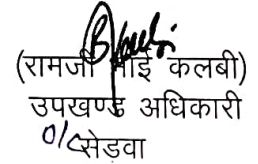 (रामजी भाई कलबी)
उपखण्ड अधिकारी
O/C सेड़वा